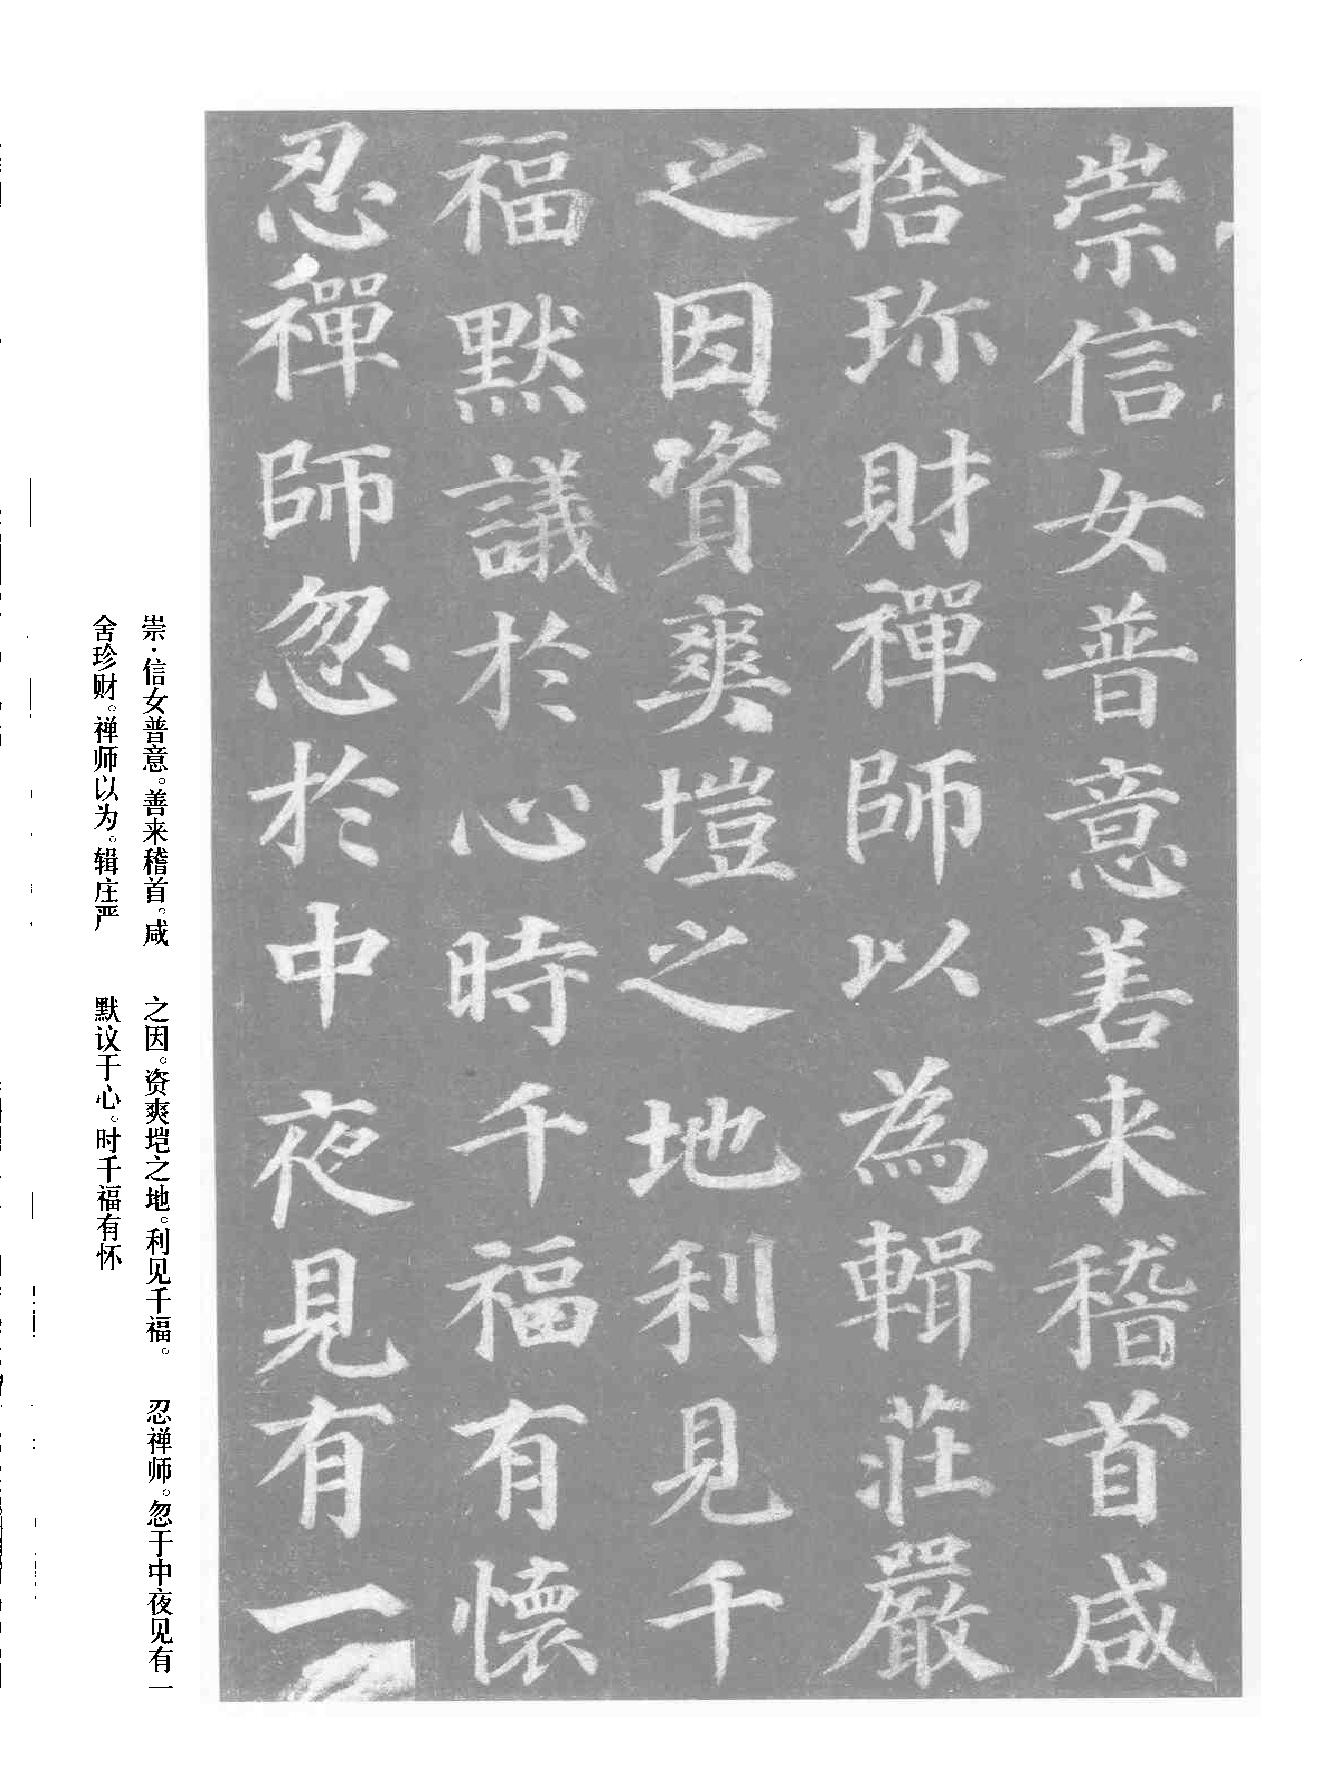 崇信女普意善来稽首咸
捨珎財禪師以為輯莊嚴
之因資爽塏之地利見千
福默議於心時千福有懷
忍禪師忽於中夜見有一
崇·信女普意。善来稽首。咸
舍珍财。禅师以为。辑庄严
之因。资爽垲之地。利见千福。
默议于心。时千福有怀
忍禅师。忽于中夜见有一